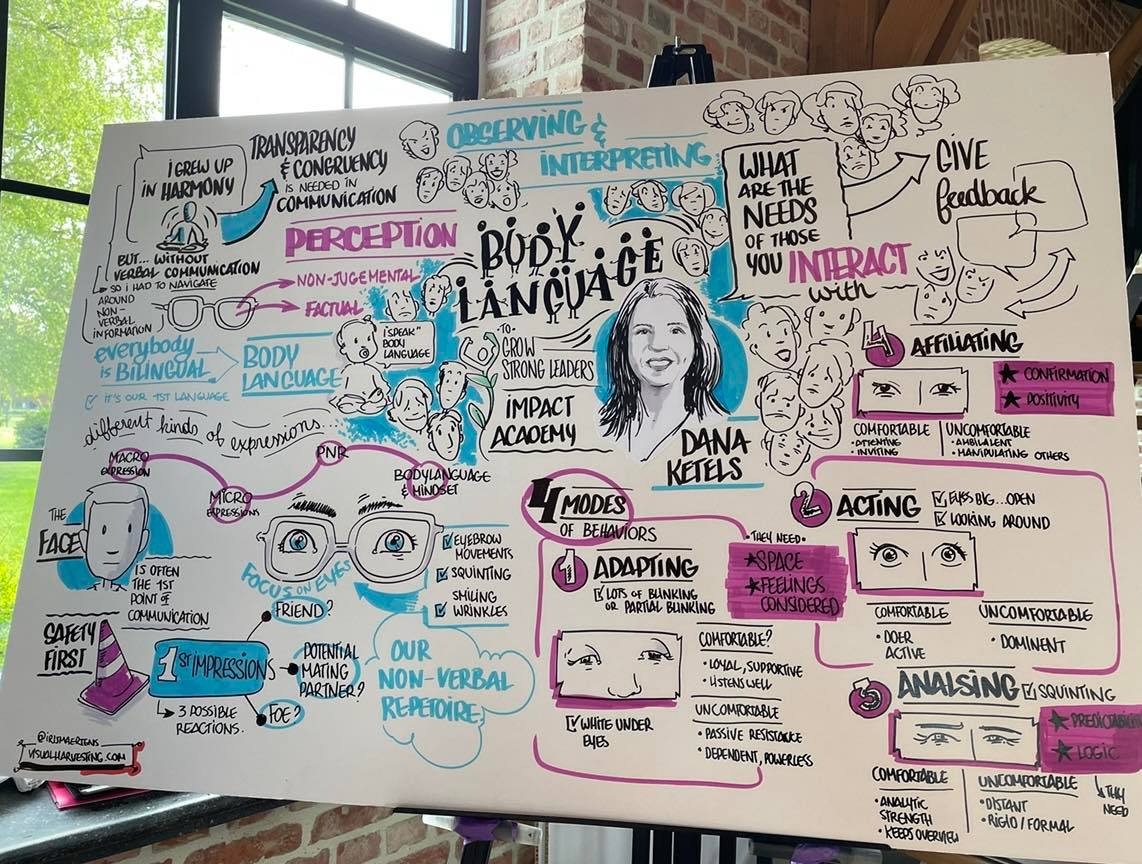 I GREW UP
IN HARMONY
BUT... WITHOUT
VERBAL COMMUNICATION
SO I HAD TO NAVIGATE
AROUND
NON-
VERBAL
INFORMATION
TRANSPARENCY
& CONGRUENCY
IS NEEDED IN
COMMUNICATION
PERCEPTION
NON-JUGEMENTAL
FACTUAL
everybody
is BILINGUAL
BODY
LANGUAGE
IT'S OUR 1ST LANGUAGE
I SPEAK
BODY
LANGUAGE
OBSERVING &
INTERPRETING
BODY
LANGUAGE
-TO-
GROW
STRONG LEADERS
IMPACT
ACADEMY
DANA
KETELS
WHAT
ARE THE
NEEDS
OF THOSE
YOU INTERACT
with
GIVE
feedback
different kinds of expressions.
MACRO
EXPRESSION
MICRO
EXPRESSIONS
PNR
BODYLANGUAGE
& MINDSET
THE
FACE
IS OFTEN
THE 1ST
POINT OF
COMMUNICATION
FOCUS ON EYES
EYEBROW
MOVEMENTS
SQUINTING
SMILING
WRINKLES
SAFETY
FIRST
1ST IMPRESSIONS
3 POSSIBLE
REACTIONS.
FRIEND?
POTENTIAL
MATING
PARTNER?
FOE?
OUR
NON-VERBAL
REPETOIRE
@IRISMAERTENS
VISUALHARVESTING.COM
4 MODES
OF BEHAVIORS
1 ADAPTING
LOTS OF BLINKING
OR PARTIAL BLINKING
•THEY NEED•
SPACE
FEELINGS
CONSIDERED
WHITE UNDER
EYES
COMFORTABLE?
• LOYAL, SUPPORTIVE
• LISTENS WELL
UNCOMFORTABLE
• PASSIVE RESISTANCE
• DEPENDENT, POWERLESS
2 ACTING
EYES BIG...OPEN
LOOKING AROUND
COMFORTABLE
• DOER
ACTIVE
UNCOMFORTABLE
• DOMINENT
3 ANALSING
SQUINTING
LOGIC
THEY
NEED
COMFORTABLE
• ANALYTIC
STRENGTH
• KEEPS OVERVIEW
UNCOMFORTABLE
• DISTANT
• RIGID / FORMAL
4 AFFILIATING
CONFIRMATION
POSITIVITY
COMFORTABLE
• ATTENTING
INVITING
UNCOMFORTABLE
• AMBILALENT
• MANIPULATING OTHERS